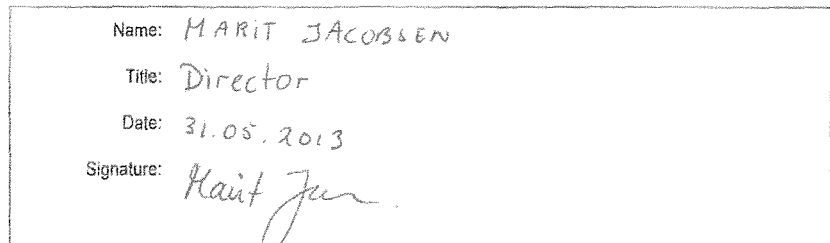 Name: MARIT JACOBSEN
Title: Director
Date: 31.05.2013
Signature: Marit